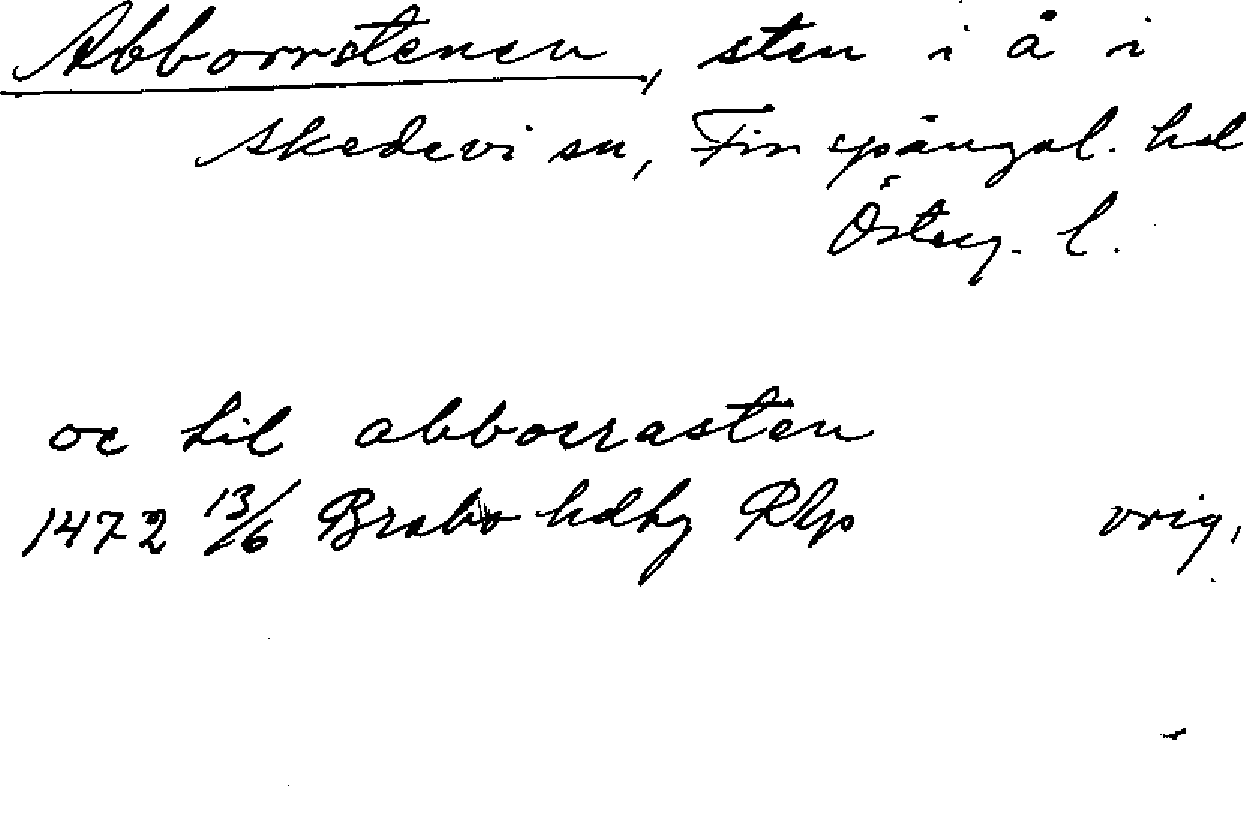 Abborrstenen, sten i å i
Skedevi sn, Finspångal. hd
Österg. l.
oc til abborrasten
1472 13/6 Brabo hdtg RAp orig.